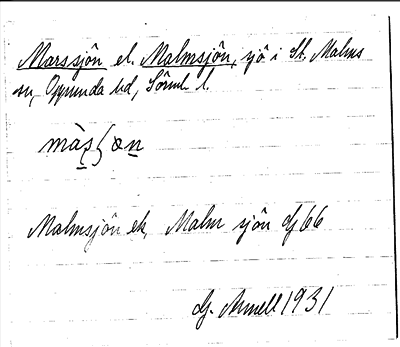 Marssjön el. Malmsjön, sjö i St. Malms
sn, Oppunda hd, Sörml. l.
Malmsjön ek, Malm sjön dj 66
Dj. Armell 1931